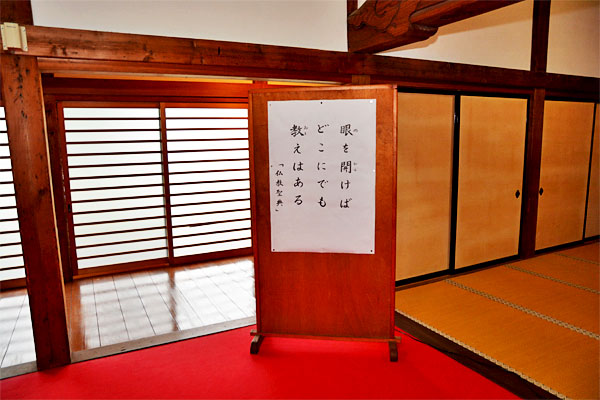 眼を開けば
どこにでも
教えはある
「仏教聖典」